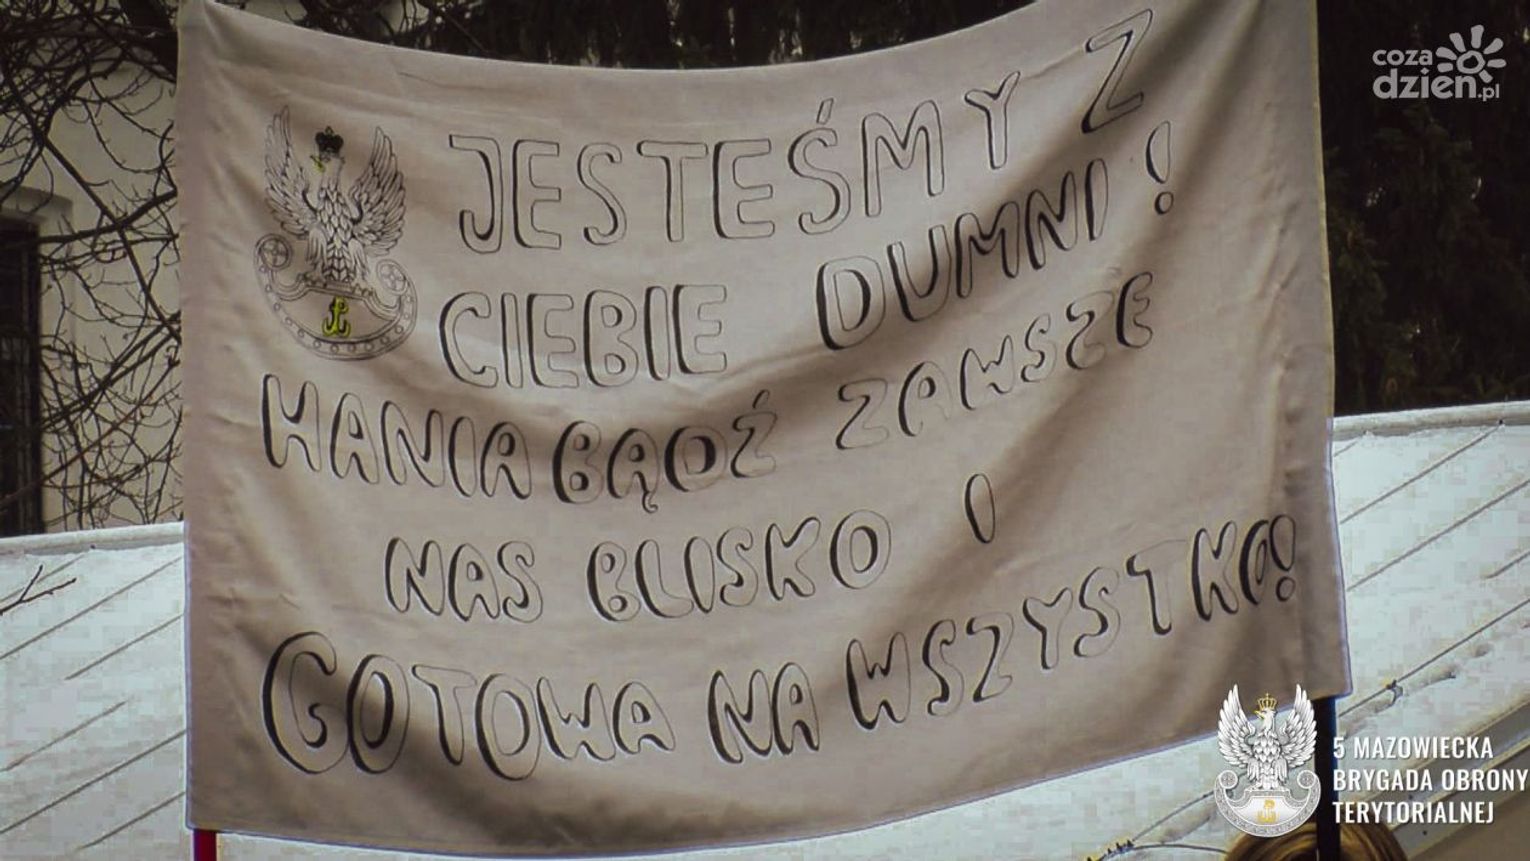 JESTEŚMY Z
CIEBIE DUMNI!
HANIA BĄDŹ ZAWSZE
NAS BLISKO I
GOTOWA NA WSZYSTKO!
coza
dzien.pl
5 MAZOWIECKA
BRYGADA OBRONY
TERYTORIALNEJ